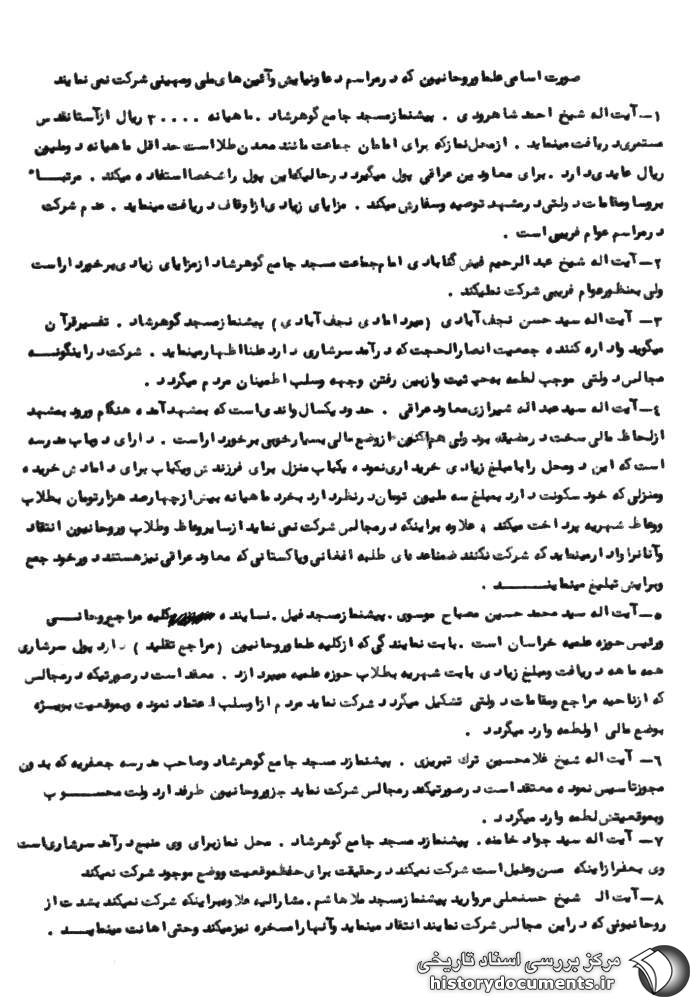 صورت اسامی علما و روحانیون که در مراسم دعا و نیایش و آئین های ملی و میهنی شرکت نمی نمایند
۱ــ آیت اله شیخ احمد شاهرودی . پیشنماز مسجد جامع گوهرشاد . ماهیانه ۳۰۰۰ ریال از آستانقدس
مستمری دریافت مینماید . از محل نماز که برای امامان جماعت مانند معدن طلا است حداقل ماهیانه دو ملیون
ریال عایدی دارد . برای معاودین عراقی پول میگیرد در حالیکه این پول را شخصا استفاده میکند . مرتبــا"
بروسا و مقامات دولتی در مشهد توصیه و سفارش میکند . مزایای زیادی از اوقاف دریافت مینماید . عدم شرکت
در مراسم عوام فریبی است .
۲ــ آیت اله شیخ عبدالرحیم فیض گنابادی امام جماعت مسجد جامع گوهرشاد از مزایای زیادی برخوردار است
ولی بمنظور عوام فریبی شرکت نمیکند .
۳ــ آیت اله سید حسن نجف آبادی (میردامادی نجف آبادی) پیشنماز مسجد گوهرشاد . تفسیر قرآن
میگوید و اداره کننده جمعیت انصارالحجت که درآمد سرشاری دارد علنا اظهار مینماید . شرکت در اینگونـــه
مجالس دولتی موجب لطمه به حیثیت و ازبین رفتن وجهه و سلب اطمینان مردم میگردد .
٤ــ آیت اله سید عبداله شیرازی معاود عراقی . حدود یکسال و اندی است که بمشهد آمده هنگام ورود بمشهد
از لحاظ مالی سخت در مضیقه بود ولی هم اکنون از وضع مالی بسیار خوبی برخوردار است . دارای دو باب مدرسه
است که این دو محل را با مبلغ زیادی خریداری نموده یکباب منزل برای فرزندش و یکباب برای دامادش خریده
و منزلی که خود سکونت دارد بمبلغ سه ملیون تومان در نظر دارد بخرد ماهیانه بیش از چهارصد هزار تومان بطلاب
و وعاظ شهریه پرداخت میکند ، علاوه بر اینکه در مجالس شرکت نمی نماید از سایر وعاظ و طلاب و روحانیون انتقاد
و آنانرا وادار مینماید که شرکت نکنند ضمنا عده ای طلبه افغانی و پاکستانی که معاود عراقی نیز هستند دور خود جمع
و برایش تبلیغ مینماینـــــد .
٥ــ آیت اله سید محمد حسین مصباح موسوی . پیشنماز مسجد فیل . نماینده کلیه مراجع روحانـــی
و رئیس حوزه علمیه خراسان است . بابت نمایندگی که از کلیه علما و روحانیون (مراجع تقلید) دارد پول سرشاری
همه ماهه دریافت و مبلغ زیادی بابت شهریه بطلاب حوزه علمیه میپردازد . معتقد است در صورتیکه در مجالس
که از ناحیه مراجع و مقامات دولتی تشکیل میگردد شرکت نماید مردم از او سلب اعتماد نموده و بموقعیت بویـــژه
بوضع مالی او لطمه وارد میگردد .
٦ــ آیت اله شیخ غلامحسین ترك تبریزی . پیشنماز مسجد جامع گوهرشاد و صاحب مدرسه جعفریه که بدون
مجوز تاسیس نموده معتقد است در صورتیکه در مجالس شرکت نماید جزو روحانیون طرفدار دولت محســـوب
و بموقعیتش لطمه وارد میگردد .
۷ــ آیت اله سید جواد خامنه . پیشنماز مسجد جامع گوهرشاد . محل نماز برای وی منبع درآمد سرشاری است
وی بعذر از اینکه مسن و علیل است شرکت نمیکند در حقیقت برای حفظ موقعیت و وضع موجود شرکت نمیکند
۸ــ آیت اله شیخ حسنعلی مروارید پیشنماز مسجد ملاهاشم . مشارالیه علاوه بر اینکه شرکت نمیکند بشدت از
روحانیونی که در این مجالس شرکت نمایند انتقاد مینماید و آنها را مسخره نیز میکند و حتی اهانت مینمایـــد .
مرکز بررسی اسناد تاریخی
historydocuments.ir